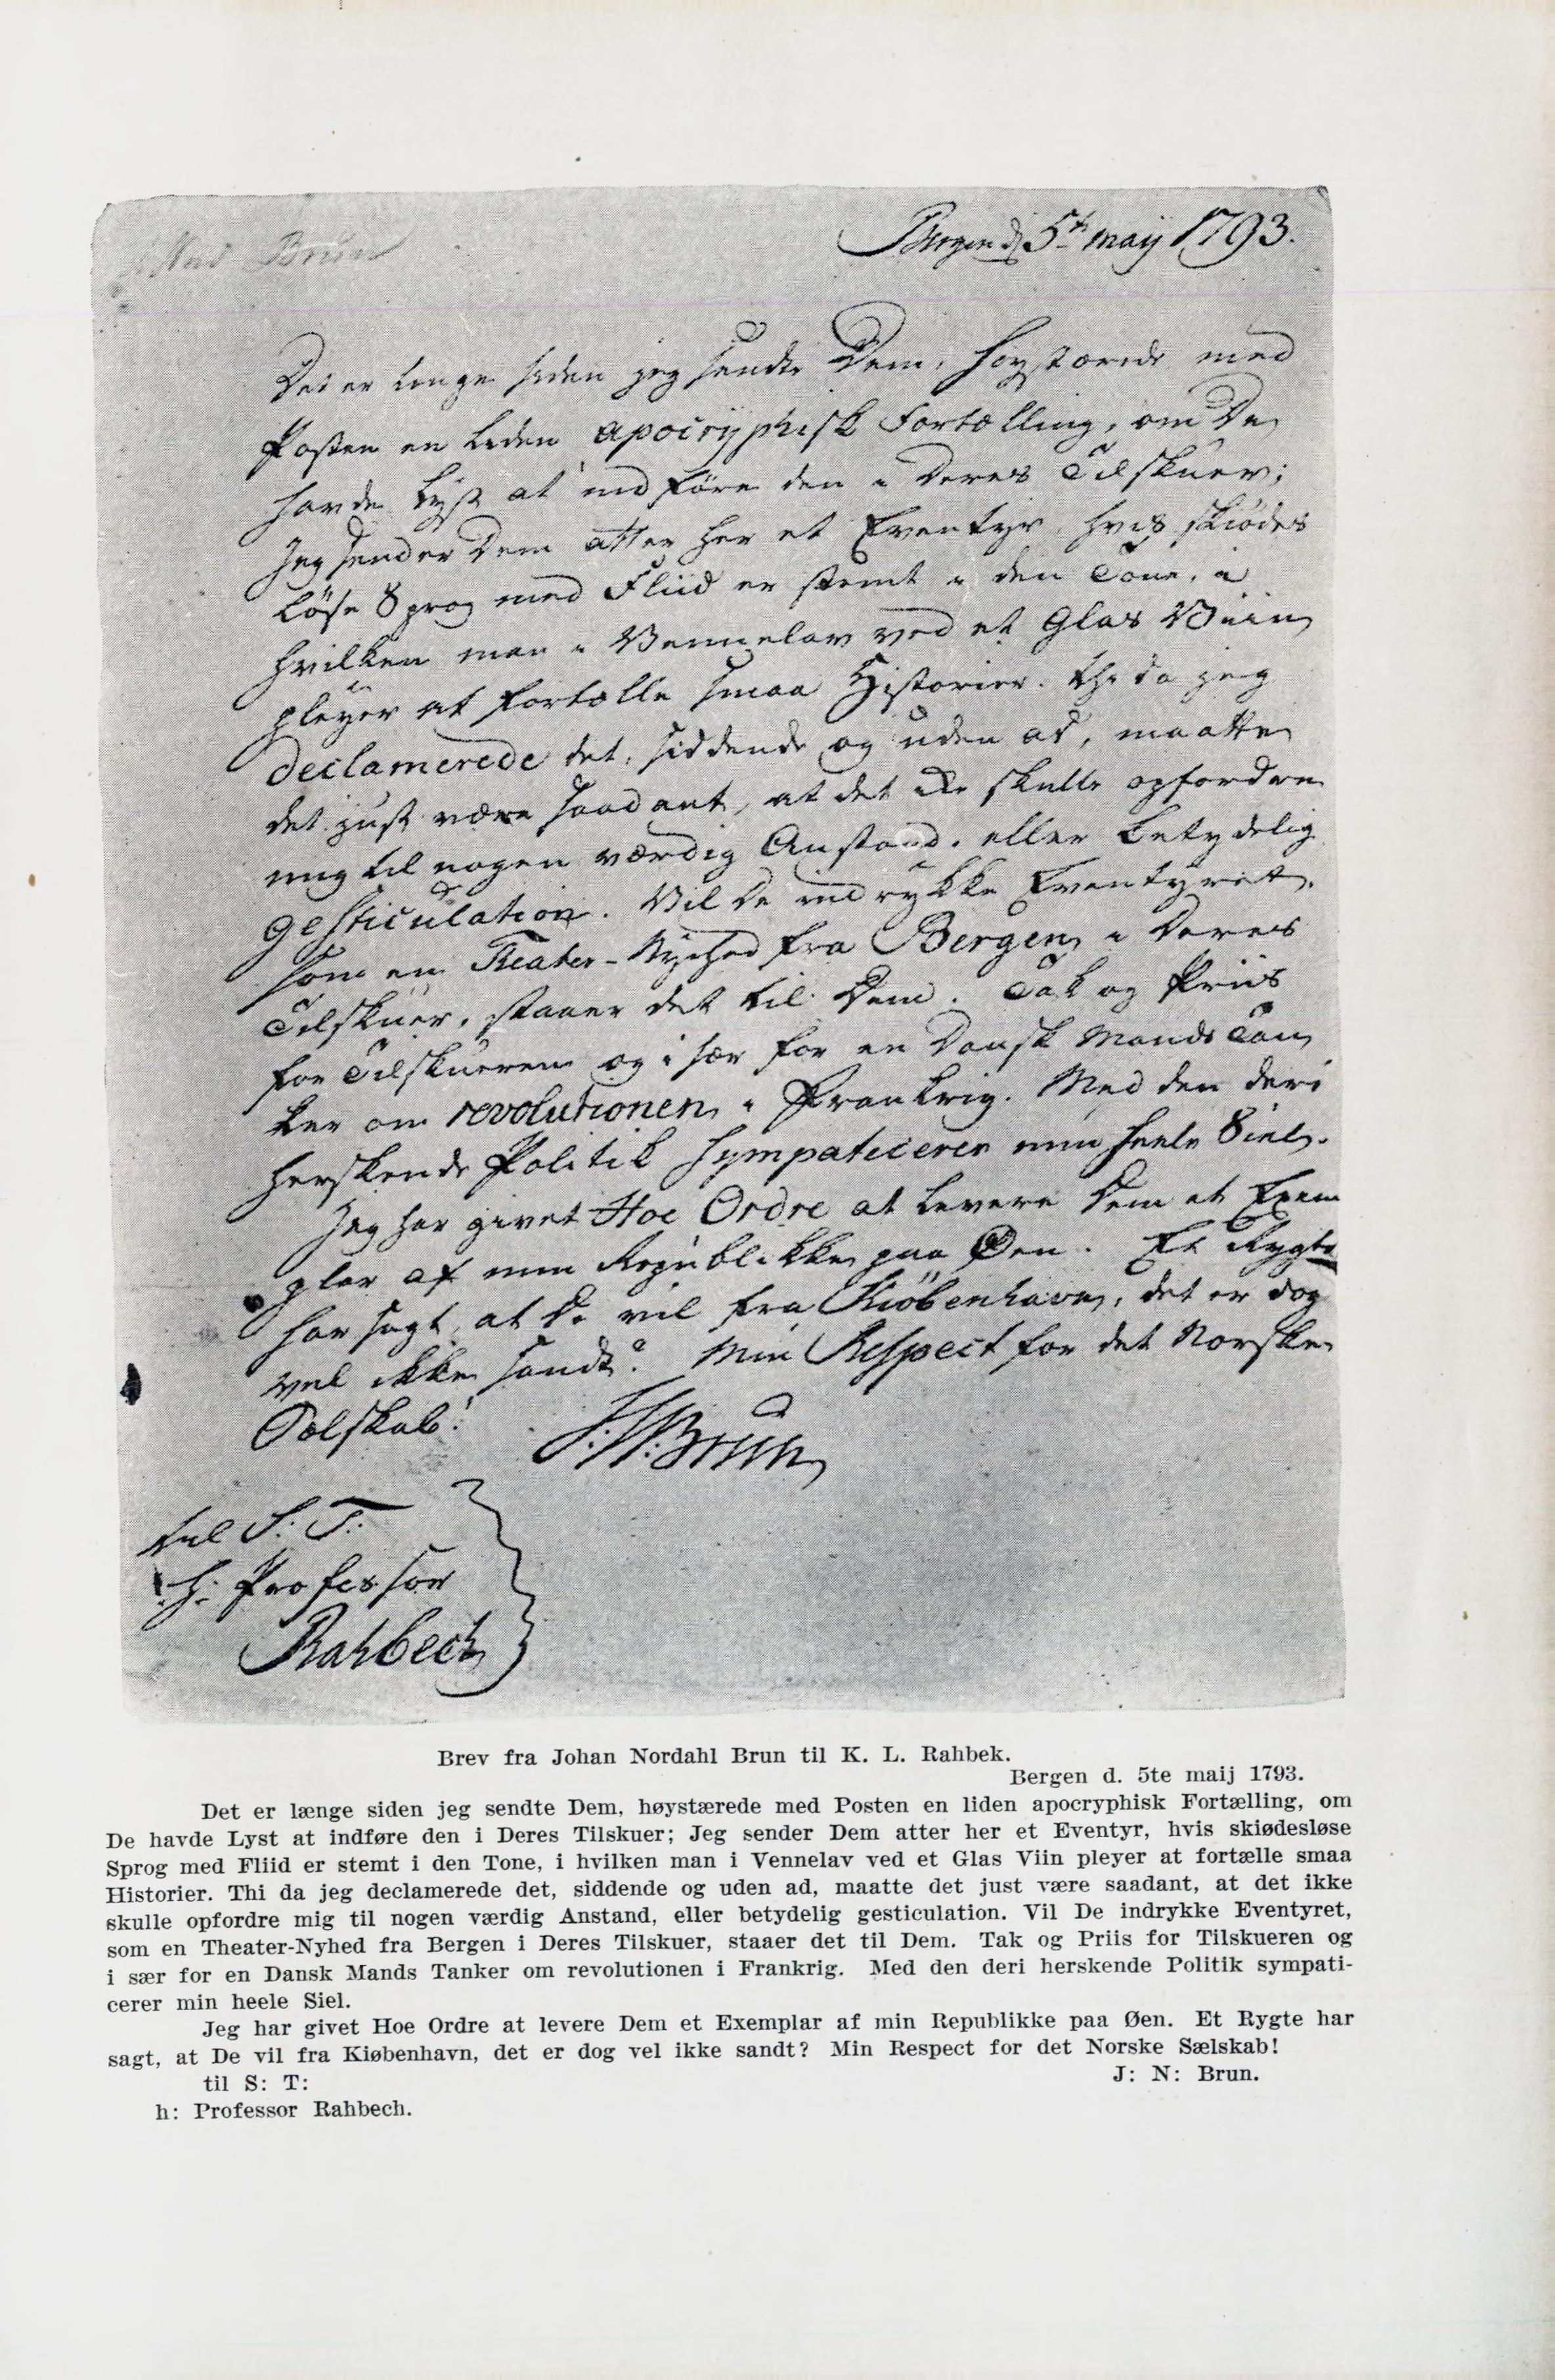 Brun
Bergen d 5te maij 1793.
Det er længe siden jeg sendte Dem, høystærede med
Posten en liden apocrÿphisk Fortælling, om De
havde Lyst at indføre den i Deres Tilskuer;
Jeg sender Dem atter her et Eventyr, hvis skiødes
løse Sprog med Fliid er stemt i den Tone, i
hvilken man i Vennelav ved et Glas Viin
pleÿer at fortælle smaa Historier. Thi da jeg
declamerede det, siddende og uden ad, maatte
det just være saadant, at det ikke skulle opfordre
mig til nogen værdig Anstand, eller betydelig
gesticulation. Vil De indrykke Eventyret,
som en Theater-Nyhed fra Bergen i Deres
Tilskuer, staaer det til Dem. Tak og Priis
for Tilskueren og i sær for en Dansk Mands Tan
ker om revolutionen i Frankrig. Med den deri
herskende Politik sympaticerer min heele Siel.
Jeg har givet Hoe Ordre at levere Dem et Exem
plar af min Republikke paa Øen. Et Rygte
har sagt, at De vil fra Kiöbenhavn, det er dog
vel ikke sandt? Min Respect for det Norske
Sælskab!
J: N: Brun
til S: T:
h: Professor
Rahbech
Brev fra Johan Nordahl Brun til K. L. Rahbek.
Bergen d. 5te maij 1793.
Det er længe siden jeg sendte Dem, høystærede med Posten en liden apocryphisk Fortælling, om
De havde Lyst at indføre den i Deres Tilskuer; Jeg sender Dem atter her et Eventyr, hvis skiødesløse
Sprog med Fliid er stemt i den Tone, i hvilken man i Vennelav ved et Glas Viin pleyer at fortælle smaa
Historier. Thi da jeg declamerede det, siddende og uden ad, maatte det just være saadant, at det ikke
skulle opfordre mig til nogen værdig Anstand, eller betydelig gesticulation. Vil De indrykke Eventyret,
som en Theater-Nyhed fra Bergen i Deres Tilskuer, staaer det til Dem. Tak og Priis for Tilskueren og
i sær for en Dansk Mands Tanker om revolutionen i Frankrig. Med den deri herskende Politik sympati-
cerer min heele Siel.
Jeg har givet Hoe Ordre at levere Dem et Exemplar af min Republikke paa Øen. Et Rygte har
sagt, at De vil fra Kiøbenhavn, det er dog vel ikke sandt? Min Respect for det Norske Sælskab!
J: N: Brun.
til S: T:
h: Professor Rahbech.